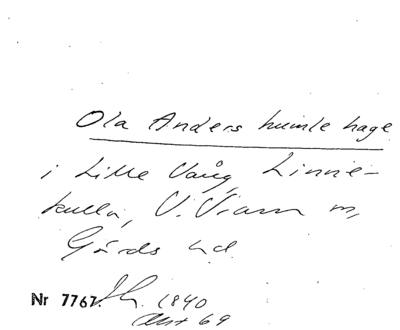 Ola Anders humle hage
i Lille Vång, Linne-
kulla, V. Vram m,
Gärds hd.
Nr 7767. 1840
Akt 69